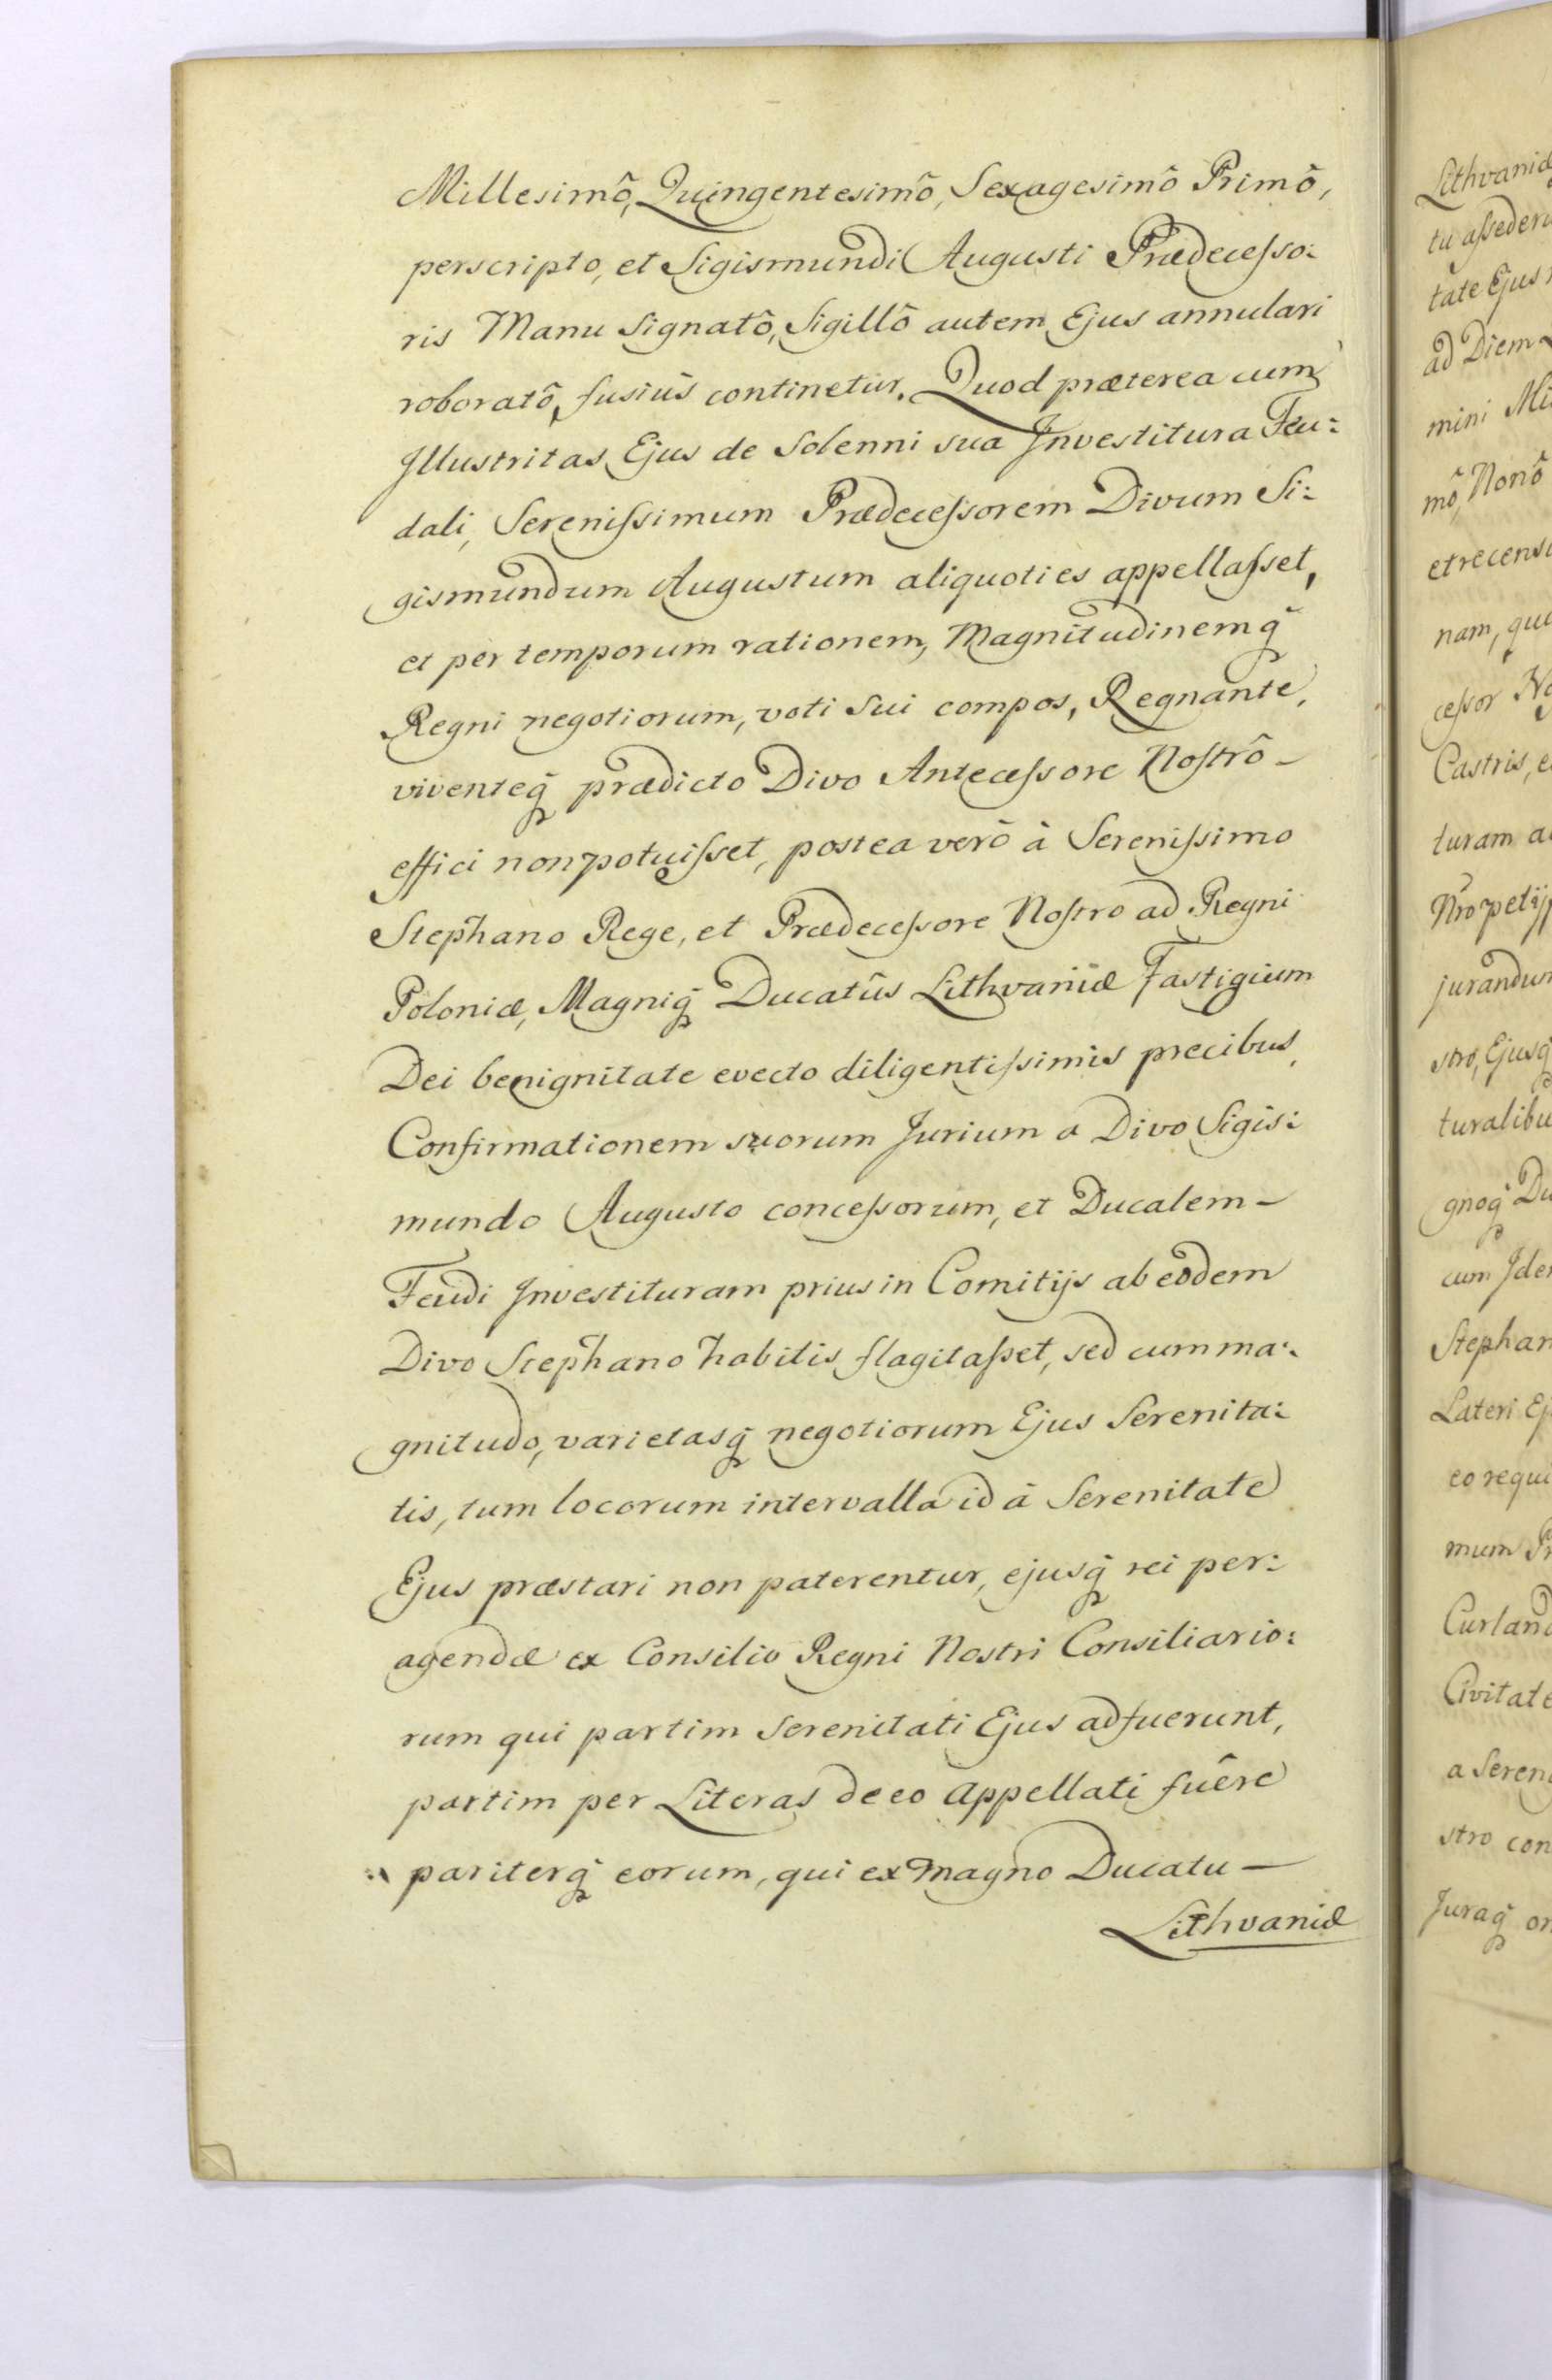 Millesimô, Quingentesimô, Sexagesimô Primô,
perscripto, et Sigismundi Augusti Prædecesso:
ris Manu Signatô, Sigillô autem Ejus annulari
roboratô, fusiùs continetur. Quod præterea cum
Illustritas Ejus de Solenni sua Investitura Feu:
dali, Serenissimum Prædecessorem Divum Si:
gismundum Augustum aliquoties appellasset,
et per temporum rationem, Magnitudinemq̃
Regni negotiorum, voti Sui compos, Regnante,
viventeq̃ prædicto Divo Antecessore Nostrô –
effici non potuisset, postea verò à Serenissimo
Stephano Rege, et Prædecessore Nostro ad Regni
Poloniæ, Magniq̃ Ducatûs Lithvaniæ Fastigium
Dei benignitate evecto diligentissimis precibus,
Confirmationem suorum Jurium a Divo Sigis:
mundo Augusto concessorum, et Ducalem –
Feudi Investituram prius in Comitijs ab eodem
Divo Stephano habitis flagitasset, sed cum ma:
gnitudo, varietasq̃ negotiorum Ejus Serenita:
tis, tum locorum intervalla id à Serenitate
Ejus præstari non paterentur, ejusq̃ rei per:
agendæ ex Consilio Regni Nostri Consiliario:
rum qui partim Serenitati Ejus adfuerunt,
partim per Literas de eo Appellati fuêre
pariterq̃ eorum, qui ex Magno Ducatu –
Lithvaniæ
Lithvaniæ
tu assederu
tate Ejus
ad Diem
mini
mô, Nonô
et recens
nam,
cessor
Castris,
turam
Nro petij
jurandum
stro, Ejusq̃
turalibu
gnoq̃ Du
cum Ide
Stephan
Lateri Ej
eo requi
mum
Curland
Civitate
a Seren
stro con
Juraq̃